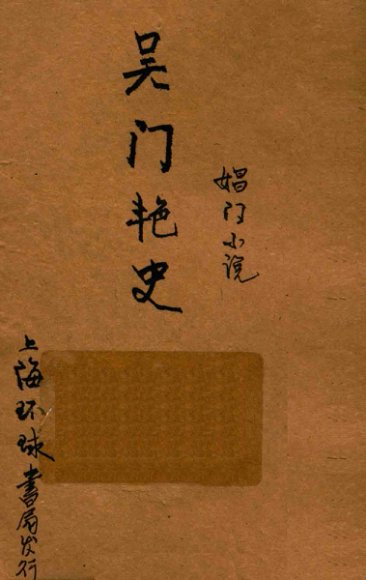 吴门艳史
娼门小说
上海环球書局发行